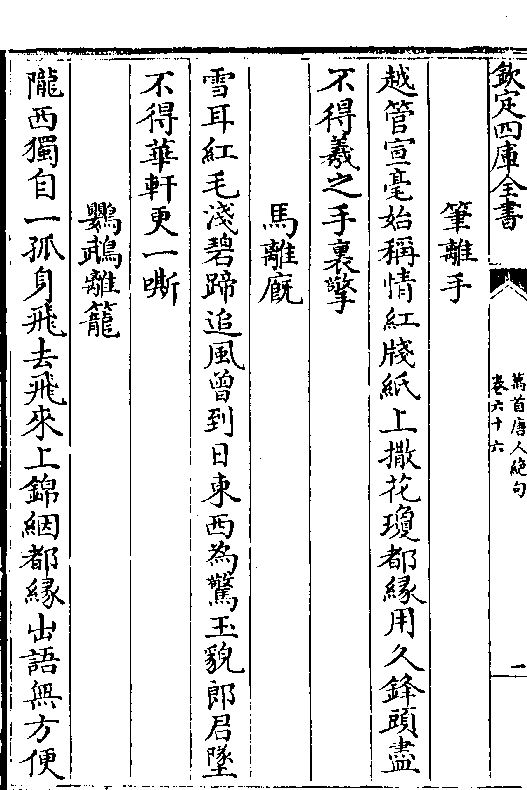 欽定四庫全書
萬首唐人絶句
卷六十六
二
筆離手
越管宣毫始稱情紅牋紙上撒花瓊都縁用久鋒頭盡
不得羲之手裏擎
馬離廐
雪耳紅毛淺碧蹄追風曾到日東西為驚玉貌郎君墜
不得華軒更一嘶
鸚鵡離籠
隴西獨自一孤身飛去飛來上錦絪都縁出語無方便